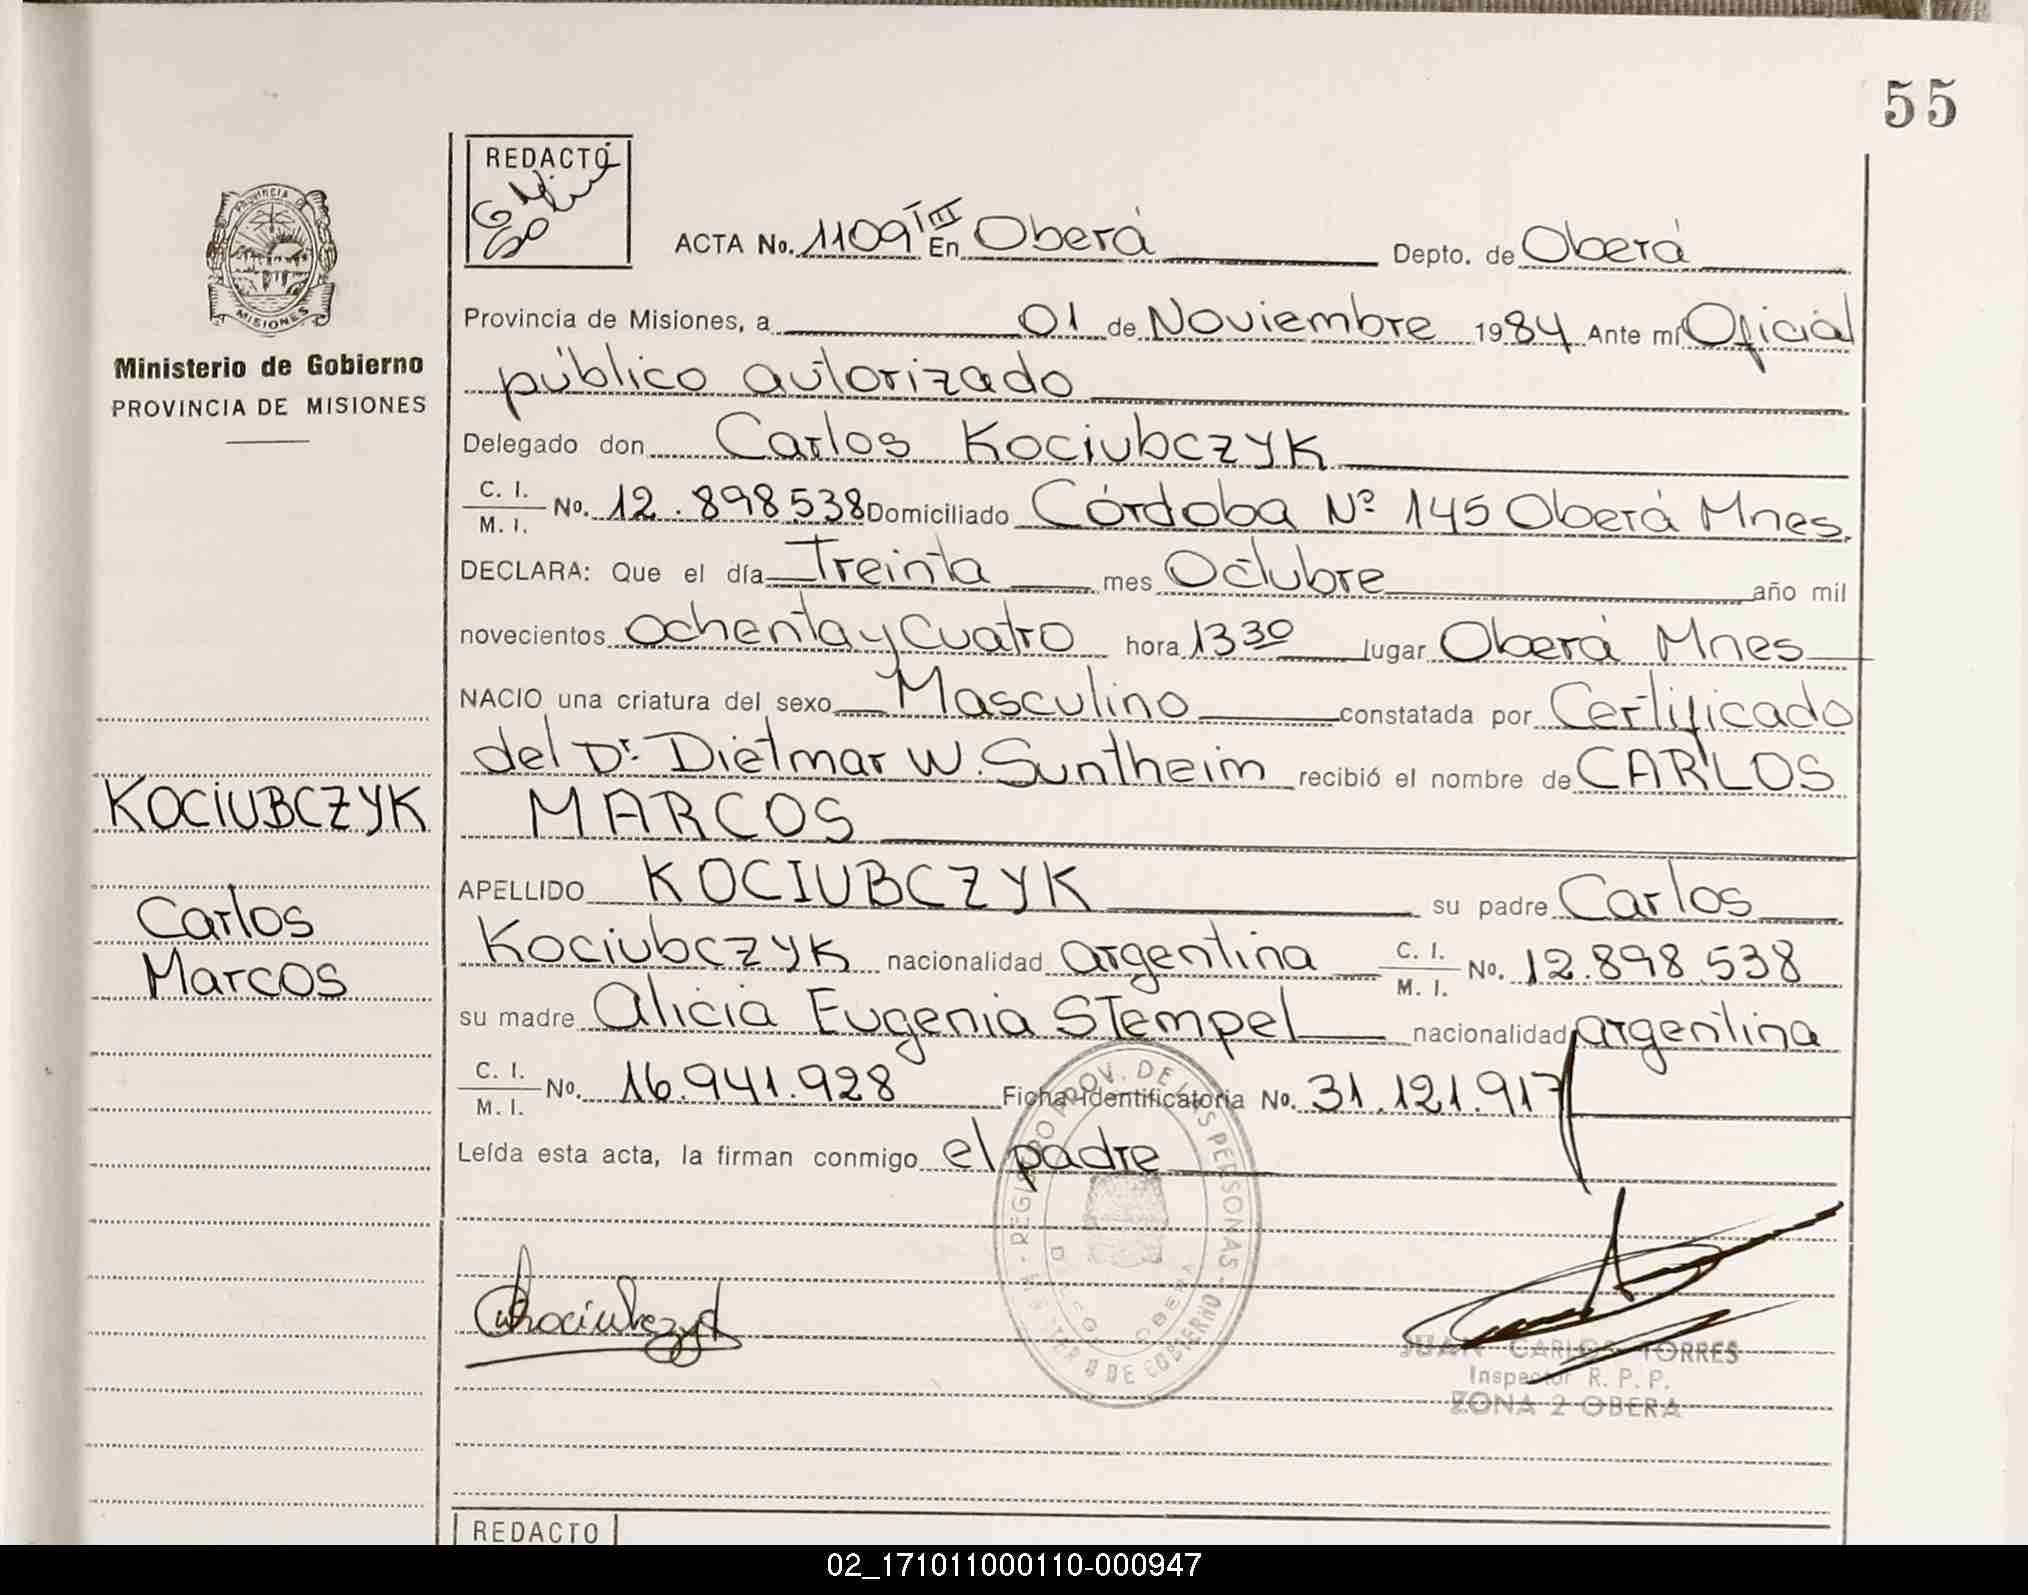 55
REDACTO
ACTA No. 1109 TIII En Oberá Depto. de Oberá
PROVINCIA DE
MISIONES
Provincia de Misiones, a 01 de Noviembre 1984 Ante mí Oficial
Ministerio de Gobierno
PROVINCIA DE MISIONES
público autorizado
Delegado don Carlos Kociubczyk
C. I. / M. I. No. 12.898.538 Domiciliado Córdoba Nº 145 Oberá Mnes.
DECLARA: Que el día Treinta mes Octubre año mil
novecientos ochenta y cuatro hora 13 30 lugar Oberá Mnes
NACIO una criatura del sexo Masculino constatada por Certificado
del Dr. Dietmar W. Suntheim recibió el nombre de CARLOS
KOCIUBCZYK
MARCOS
APELLIDO KOCIUBCZYK su padre Carlos
Carlos
Kociubczyk nacionalidad argentina C. I. / M. I. No. 12.898.538
Marcos
su madre Alicia Eugenia Stempel nacionalidad argentina
C. I. / M. I. No. 16.941.928 Ficha Identificatoria No. 31.121.917
Leída esta acta, la firman conmigo el padre
REGISTRO PROV. DE LAS PERSONAS - DE GOBIERNO
OBERA
Kociubczyk
JUAN CARLOS TORRES
Inspector R. P. P.
ZONA 2 OBERA
REDACTO
02_171011000110-000947